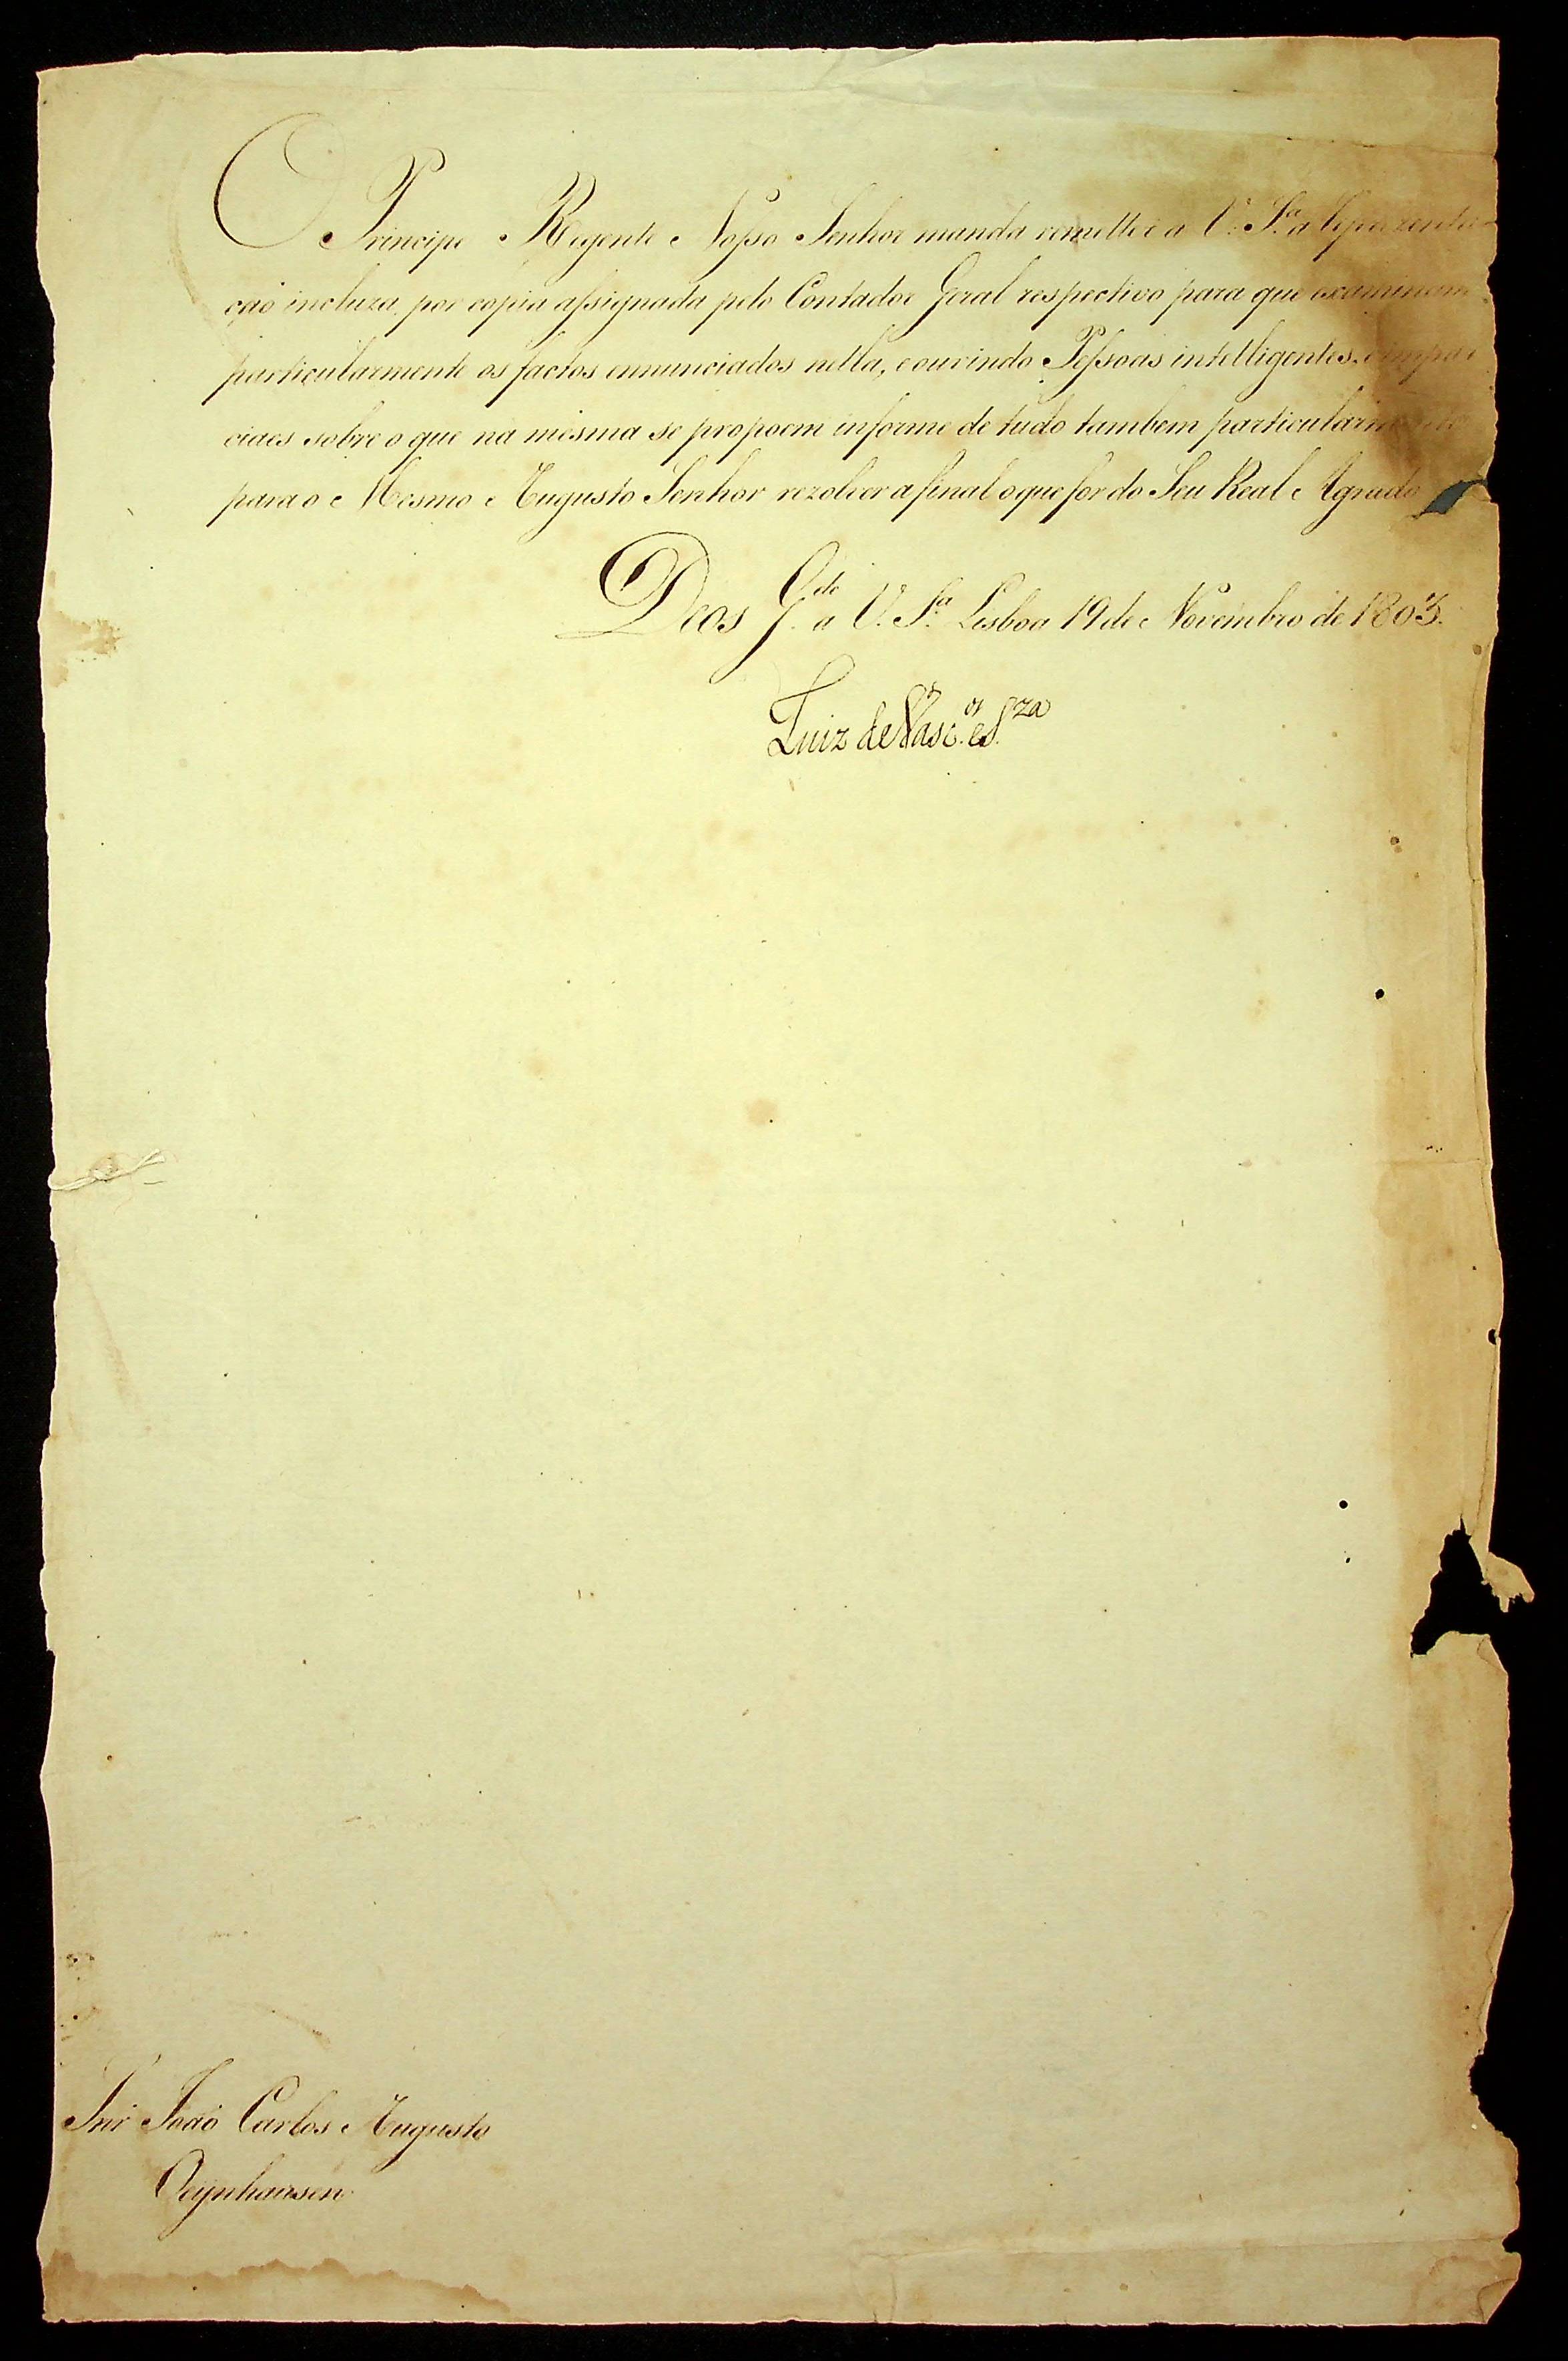 O Principe Regente Nosso Senhor manda remetter a V. S.ª a Reprezenta-
ção incluza por copia assignada pelo Contador Geral respectivo para que examinem
particularmente os factos ennunciados nella, e ouvindo Pessoas intelligentes, e impar-
ciaes sobre o que na mesma se propoem informe de tudo tambem particularmente
para o Mesmo Augusto Senhor rezolver afinal o que for do Seu Real Agrado
Deos G.de a V. S.ª Lisboa 19 de Novembro de 1803.
Luiz de Vasc.os e S.za
Snr João Carlos Augusto
Oeynhausen